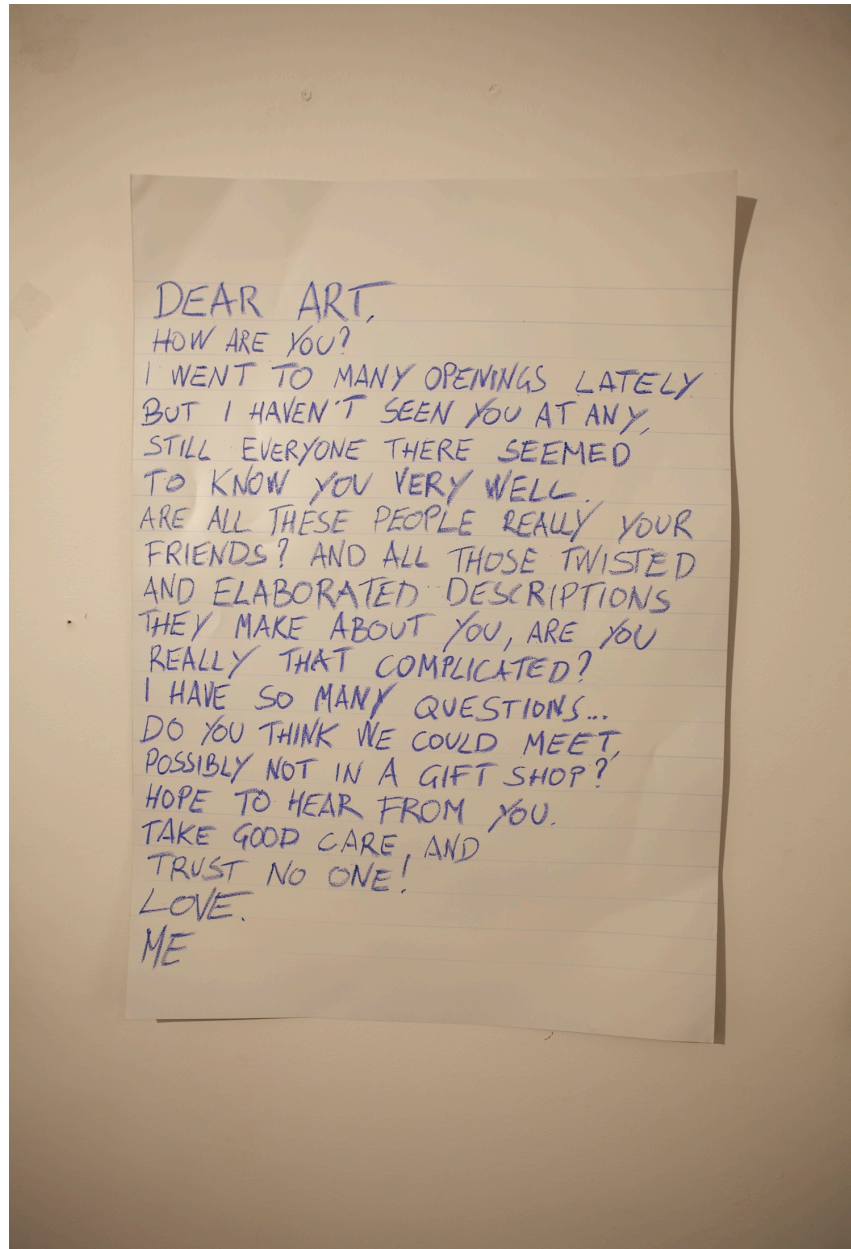 DEAR ART,
HOW ARE YOU?
I WENT TO MANY OPENINGS LATELY
BUT I HAVEN'T SEEN YOU AT ANY,
STILL EVERYONE THERE SEEMED
TO KNOW YOU VERY WELL.
ARE ALL THESE PEOPLE REALLY YOUR
FRIENDS? AND ALL THOSE TWISTED
AND ELABORATED DESCRIPTIONS
THEY MAKE ABOUT YOU, ARE YOU
REALLY THAT COMPLICATED?
I HAVE SO MANY QUESTIONS...
DO YOU THINK WE COULD MEET,
POSSIBLY NOT IN A GIFT SHOP?
HOPE TO HEAR FROM YOU.
TAKE GOOD CARE, AND
TRUST NO ONE!
LOVE.
ME